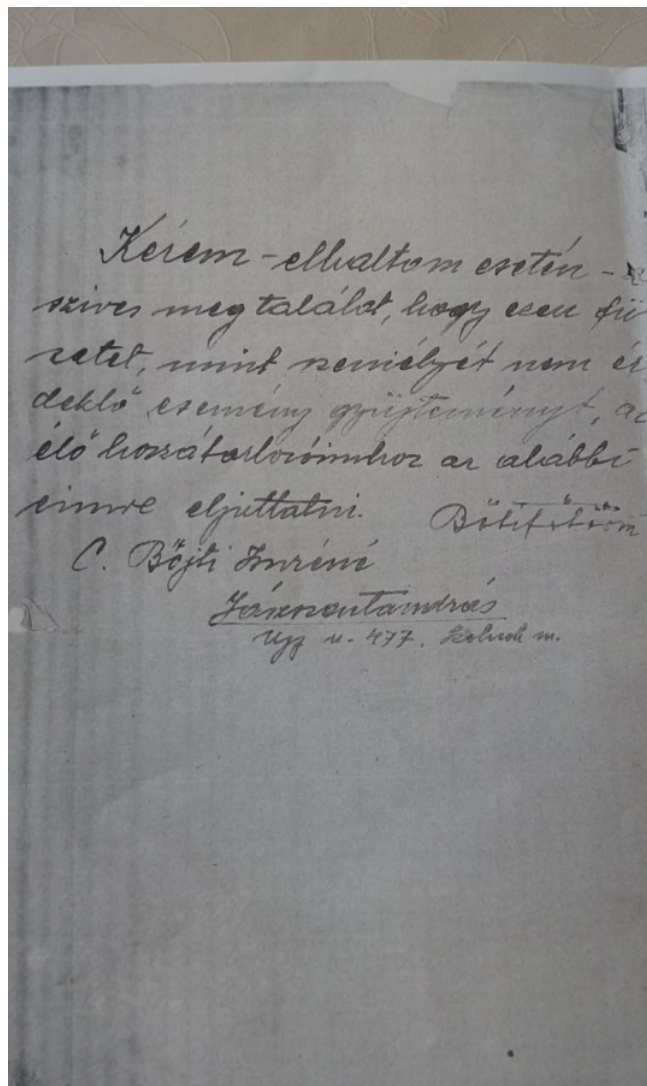 Kérem - elhaltom esetén -
szives megtalálót, hogy ezen fü
zetet, mint személyét nem ér
deklő esemény gyüjteményt, az
élő hozzátartozóimhoz az alábbi
cimre eljuttatni.
C. Böjti Imréné
Jászszentandrás
u. 477. Szolnok m.